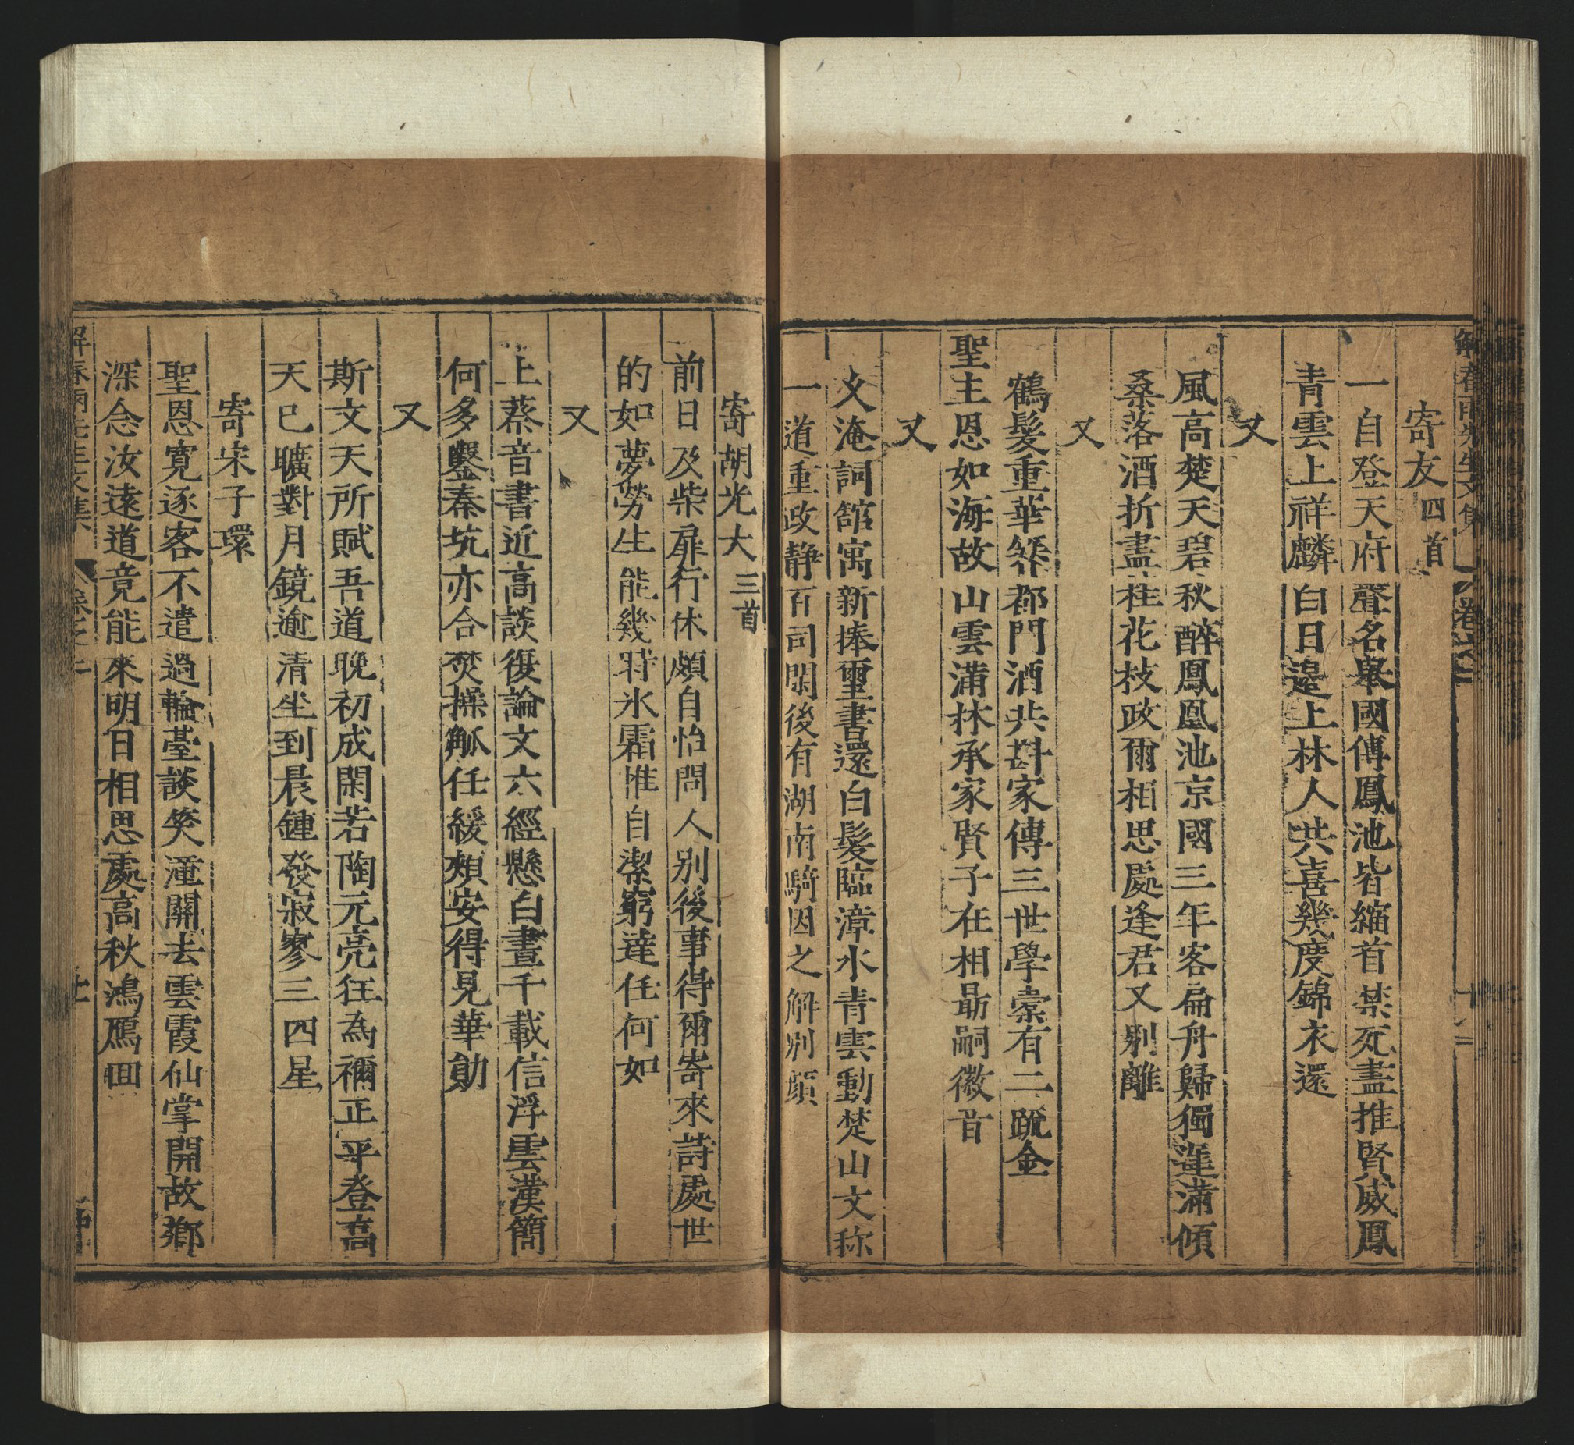 寄友四首
一自登天府聲名舉國傳鳳池皆縮首禁苑盡推賢威鳳
青雲上祥麟白日邊上林人共喜幾度錦衣還
又
風高楚天碧秋醉鳳凰池京國三年客扁舟歸獨遲滿傾
桑落酒折盡桂花枝政爾相思處逢君又別離
又
鶴髮重華筵都門酒共斟家傳三世學橐有二疏金
聖主恩如海故山雲滿林承家賢子在相勗嗣徽音
又
文淹詞館寓新捧璽書還白髮臨漳水青雲動楚山文称
一道重政静百司閑後有湖南騎因之解別顏
寄胡光大三首
前日及柴扉行休頗自怡問人別後事得爾寄來詩處世
的如夢勞生能幾時氷霜惟自潔窮達任何如
又
上蔡音書近高談復論文六經懸白晝千載信浮雲漢簡
何多鑿秦坑亦合焚操觚任緩頰安得見華勛
又
斯文天所賦吾道晚初成閑若陶元亮狂為禰正平登高
天已曠對月鏡逾清坐到晨鍾發寂寥三四星
寄宋子環
聖恩寬逐客不遣過輪臺談笑潼關去雲霞仙掌開故鄉
深念汝遠道竟能來明日相思處高秋鴻鴈回